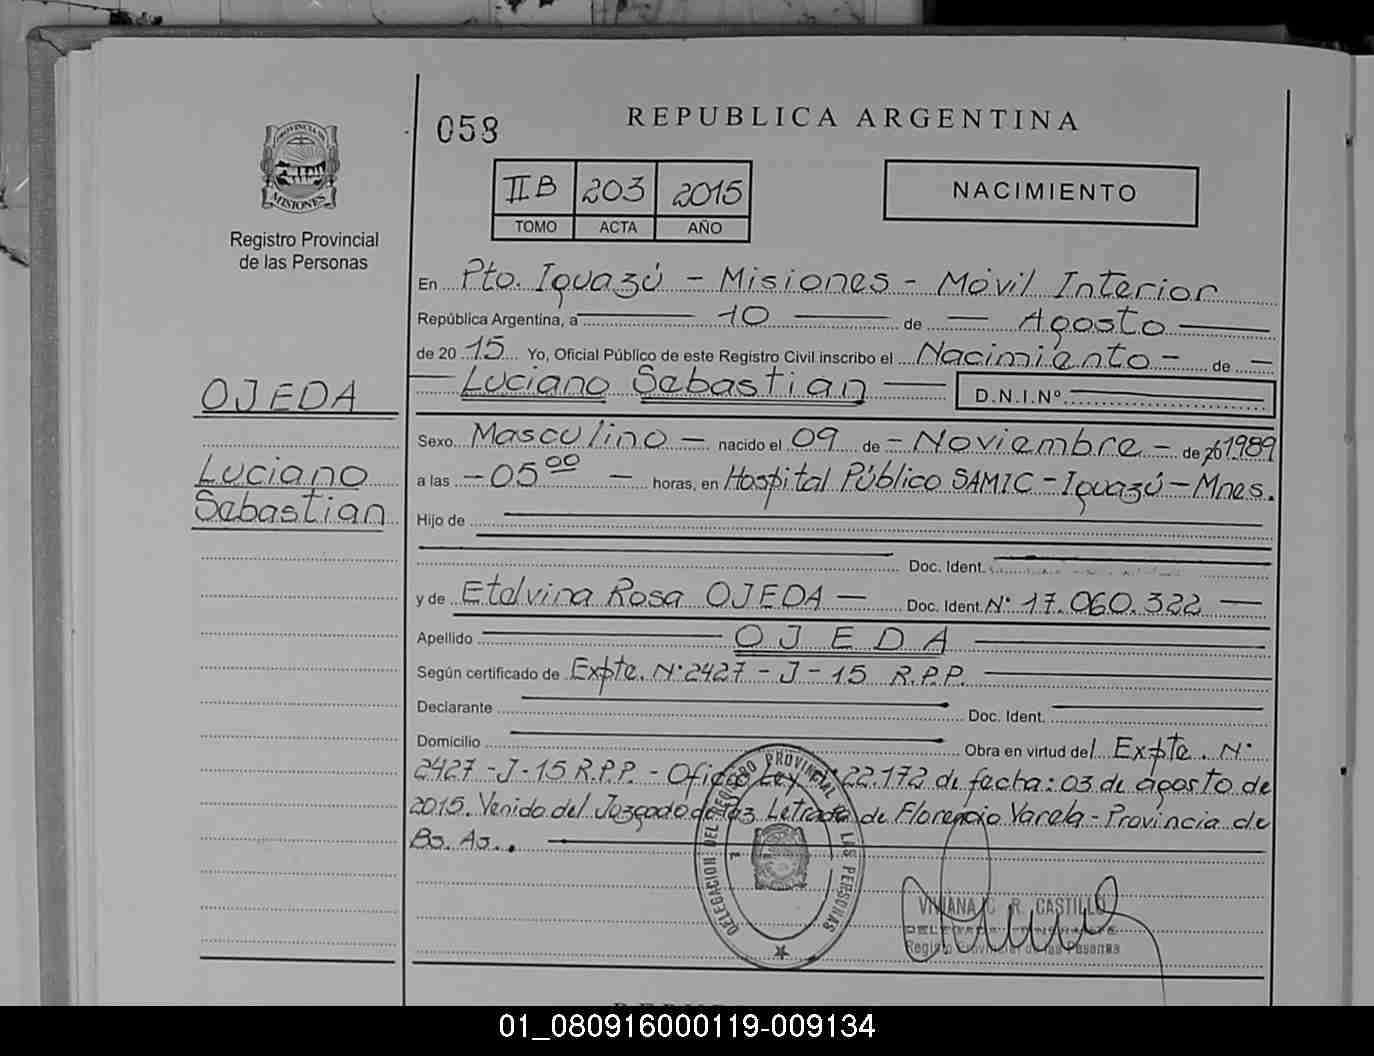 058
REPUBLICA ARGENTINA
PROVINCIA DE
MISIONES
Registro Provincial
de las Personas
II B 203 2015
TOMO ACTA AÑO
NACIMIENTO
En Pto. Iguazú - Misiones - Móvil Interior
República Argentina, a 10 de Agosto
de 20 15 Yo, Oficial Público de este Registro Civil inscribo el Nacimiento - de -
Luciano Sebastian D.N.I.Nº
OJEDA
Luciano
Sebastian
Sexo Masculino - nacido el 09 de - Noviembre - de 1989
a las - 05 00 - horas, en Hospital Público SAMIC - Iguazú - Mnes.
Hijo de
Doc. Ident.
y de Etelvina Rosa OJEDA - Doc. Ident. Nº 17.060.322 -
Apellido OJEDA
Según certificado de Expte. Nº 2427 - J - 15 R.P.P.
Declarante Doc. Ident.
Domicilio Obra en virtud del Expte. Nº
2427 - J - 15 R.P.P. - Oficio Ley 22.172 de fecha: 03 de agosto de
2015. Venido del Juzgado de Paz Letrado de Florencio Varela - Provincia de
Bs. As..
DELEGACION DEL REGISTRO PROVINCIAL DE LAS PERSONAS
VIVIANA C. R. CASTILLO
DELEGADA
Registro Provincial de las Personas
01_080916000119-009134